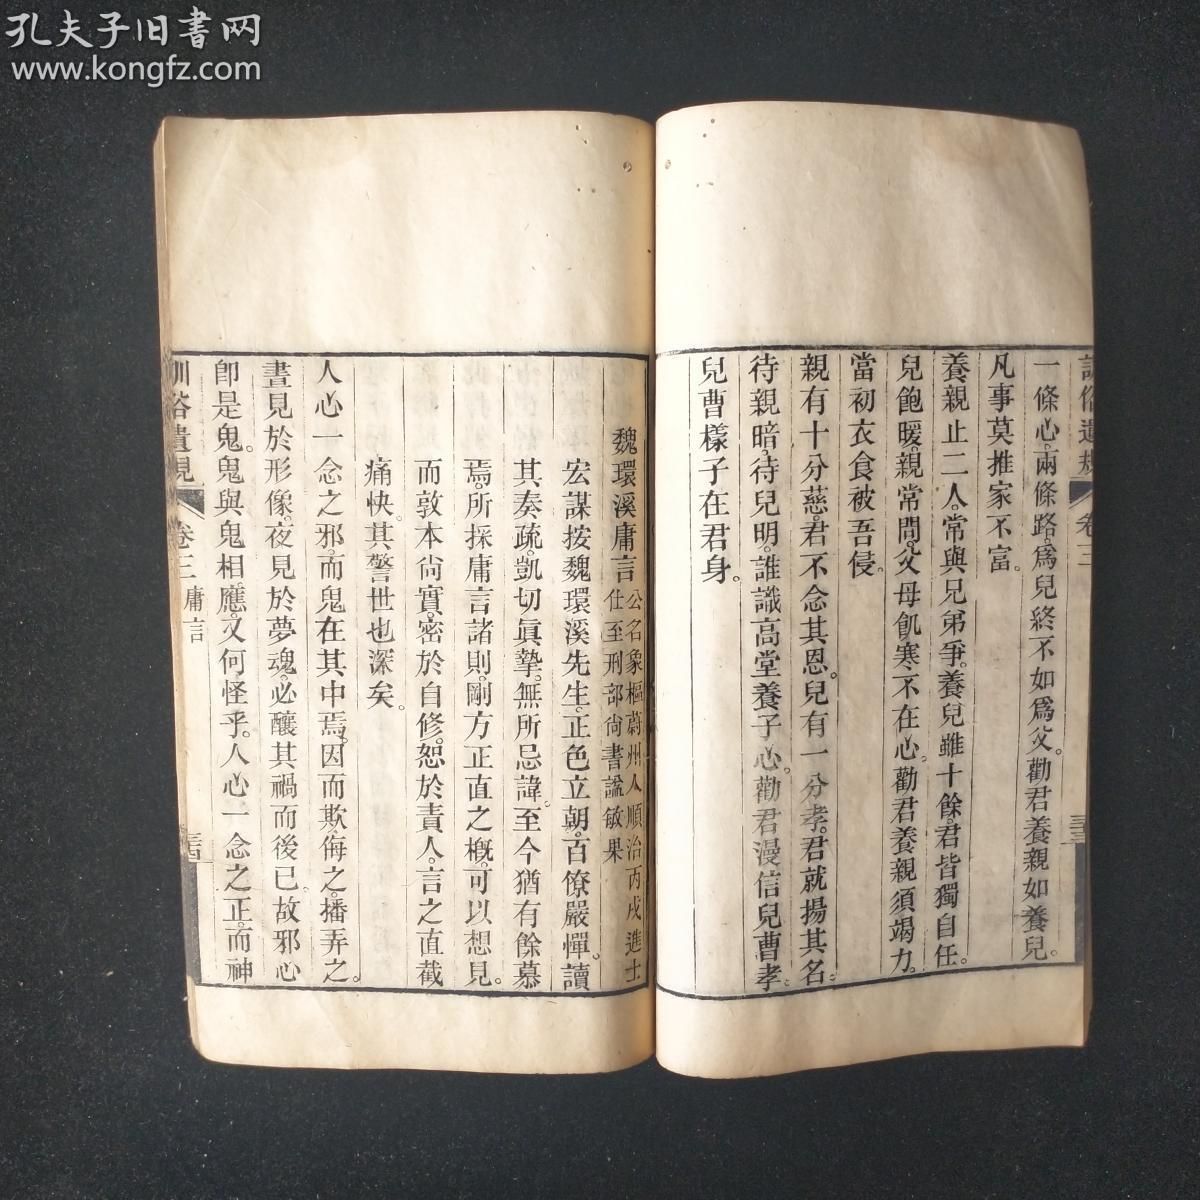 孔夫子旧書网
www.kongfz.com
訓俗遺規
卷三
三十三
一條心。兩條路。爲兒終不如爲父。勸君養親如養兒。
凡事莫推家不富。
養親止二人。常與兄弟爭。養兒雖十餘。君皆獨自任。
兒飽暖。親常問。父母飢寒不在心。勸君養親須竭力。
當初衣食被吾侵。
親有十分慈。君不念其恩。兒有一分孝。君就揚其名。
待親暗。待兒明。誰識高堂養子心。勸君漫信兒曹孝。
兒曹樣子在君身。
魏環溪庸言
公名象樞蔚州人順治丙戌進士
仕至刑部尙書謚敏果
宏謀按魏環溪先生。正色立朝。百僚嚴憚。讀
其奏疏。凱切眞摯。無所忌諱。至今猶有餘慕
焉。所採庸言諸則。剛方正直之槪。可以想見。
而敦本尙實。密於自修。恕於責人。言之直截
痛快。其警世也深矣。
人心一念之邪。而鬼在其中焉。因而欺侮之。播弄之。
晝見於形像。夜見於夢魂。必釀其禍而後已。故邪心
卽是鬼。鬼與鬼相應。又何怪乎。人心一念之正。而神
訓俗遺規
卷三庸言
三十四